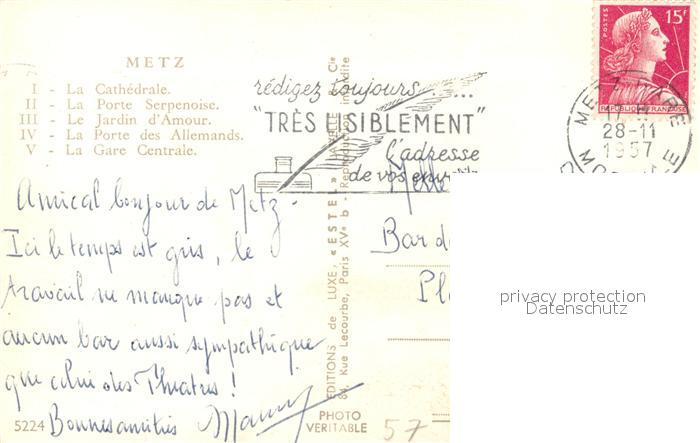 METZ
I - La Cathédrale.
II - La Porte Serpenoise.
III - Le Jardin d'Amour.
IV - La Porte des Allemands.
V - La Gare Centrale.
rédigez toujours......
"TRÈS LISIBLEMENT"
l'adresse
de vos
POSTES
15F
REPUBLIQUE FRANÇAISE
METZ GARE
17 H
28-11
1957
MOSELLE
Amical bonjour de Metz -
Ici le temps est gris, le
travail ne manque pas et
aucun bar aussi sympathique
que celui des Théatres!
Bonnes amitiés
Melle
Bar d
Pl
EDITIONS de LUXE, «ESTEL» Cie
84, Rue Lecourbe, Paris XVe b - Reproduction interdite
PHOTO
VERITABLE
5224
57
privacy protection
Datenschutz